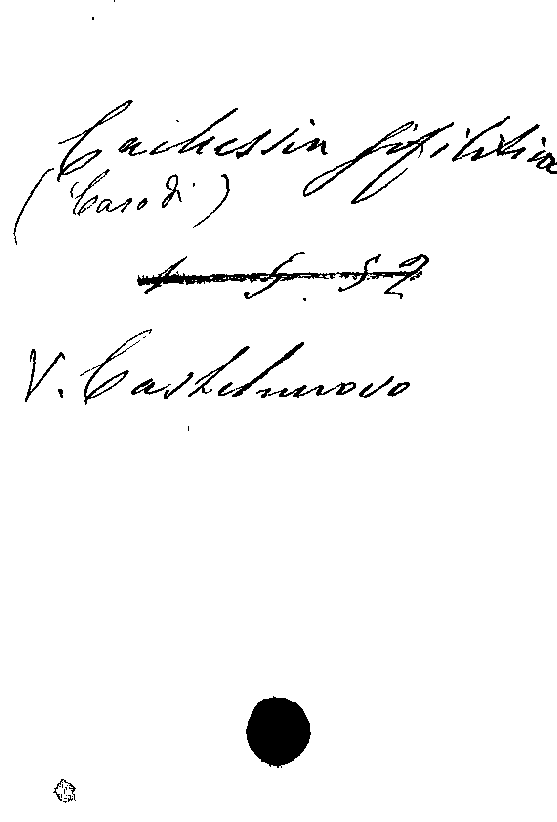 Cachessia sifilitica
(Caso di)
1 5. 52
V. Castelnuovo